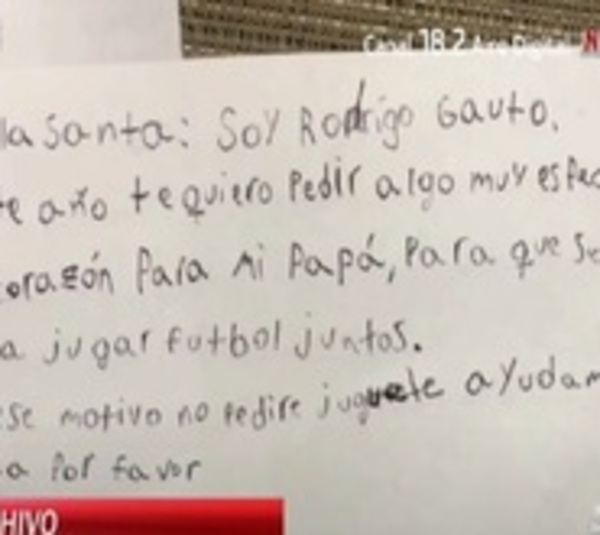 Canal 18.2 Aire Digital N
la Santa: Soy Rodrigo Gauto.
e año te quiero Pedir algo muy espec
orazón Para mi Papá, Para que se
a jugar futbol juntos.
se motivo no pedire juguete ayudam
a Por favor
HIVO